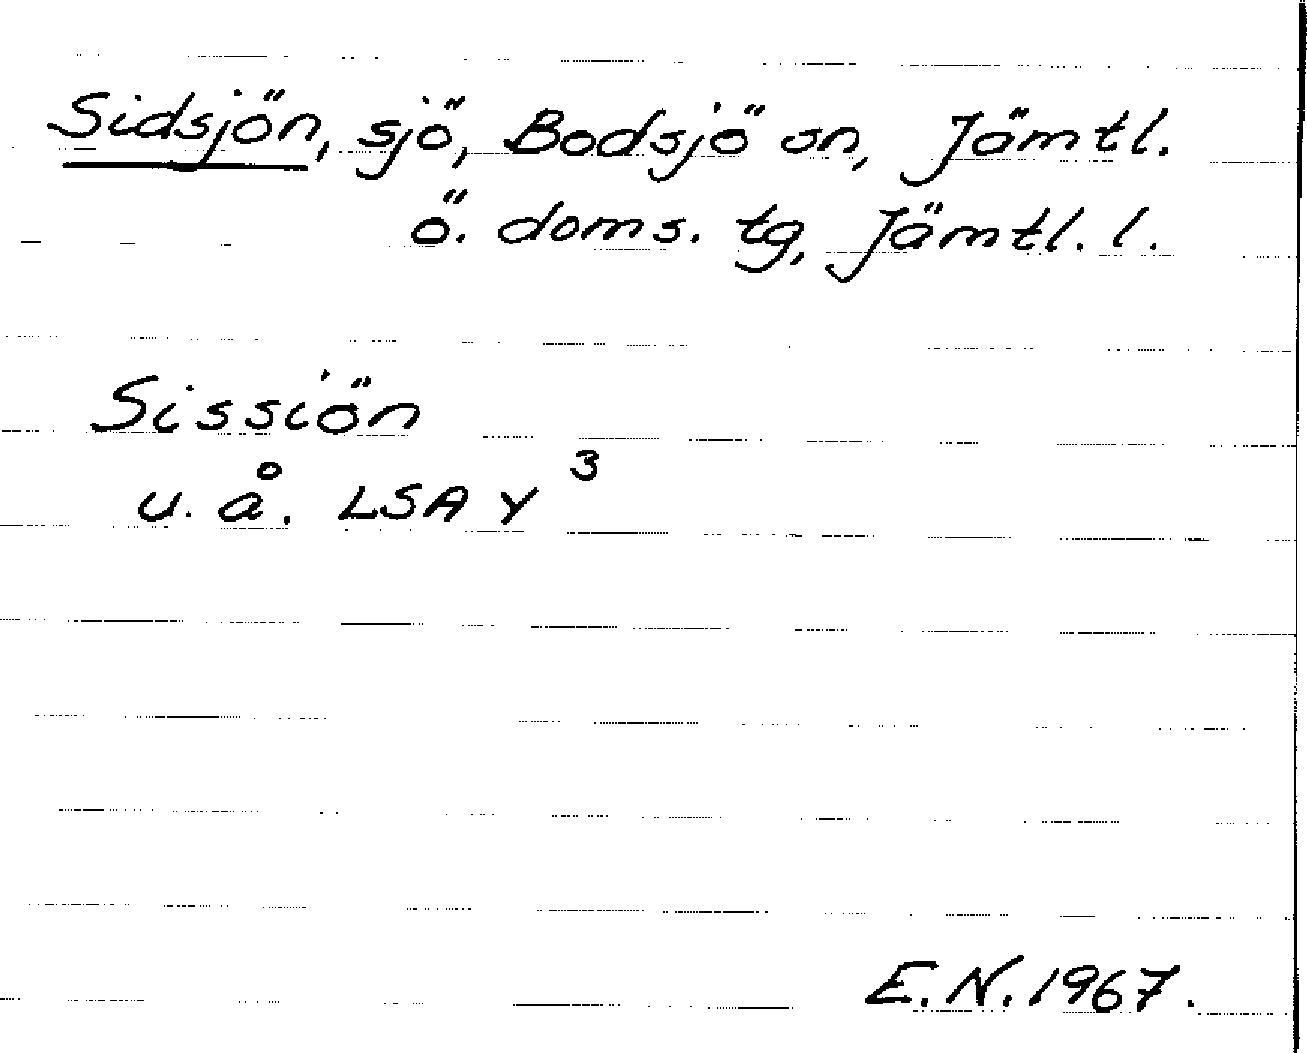 Sidsjön, sjö, Bodsjö sn, Jämtl.
ö. doms. tg, Jämtl. l.
Sissiön
u. å. LSA Y 3
E.N. 1967.